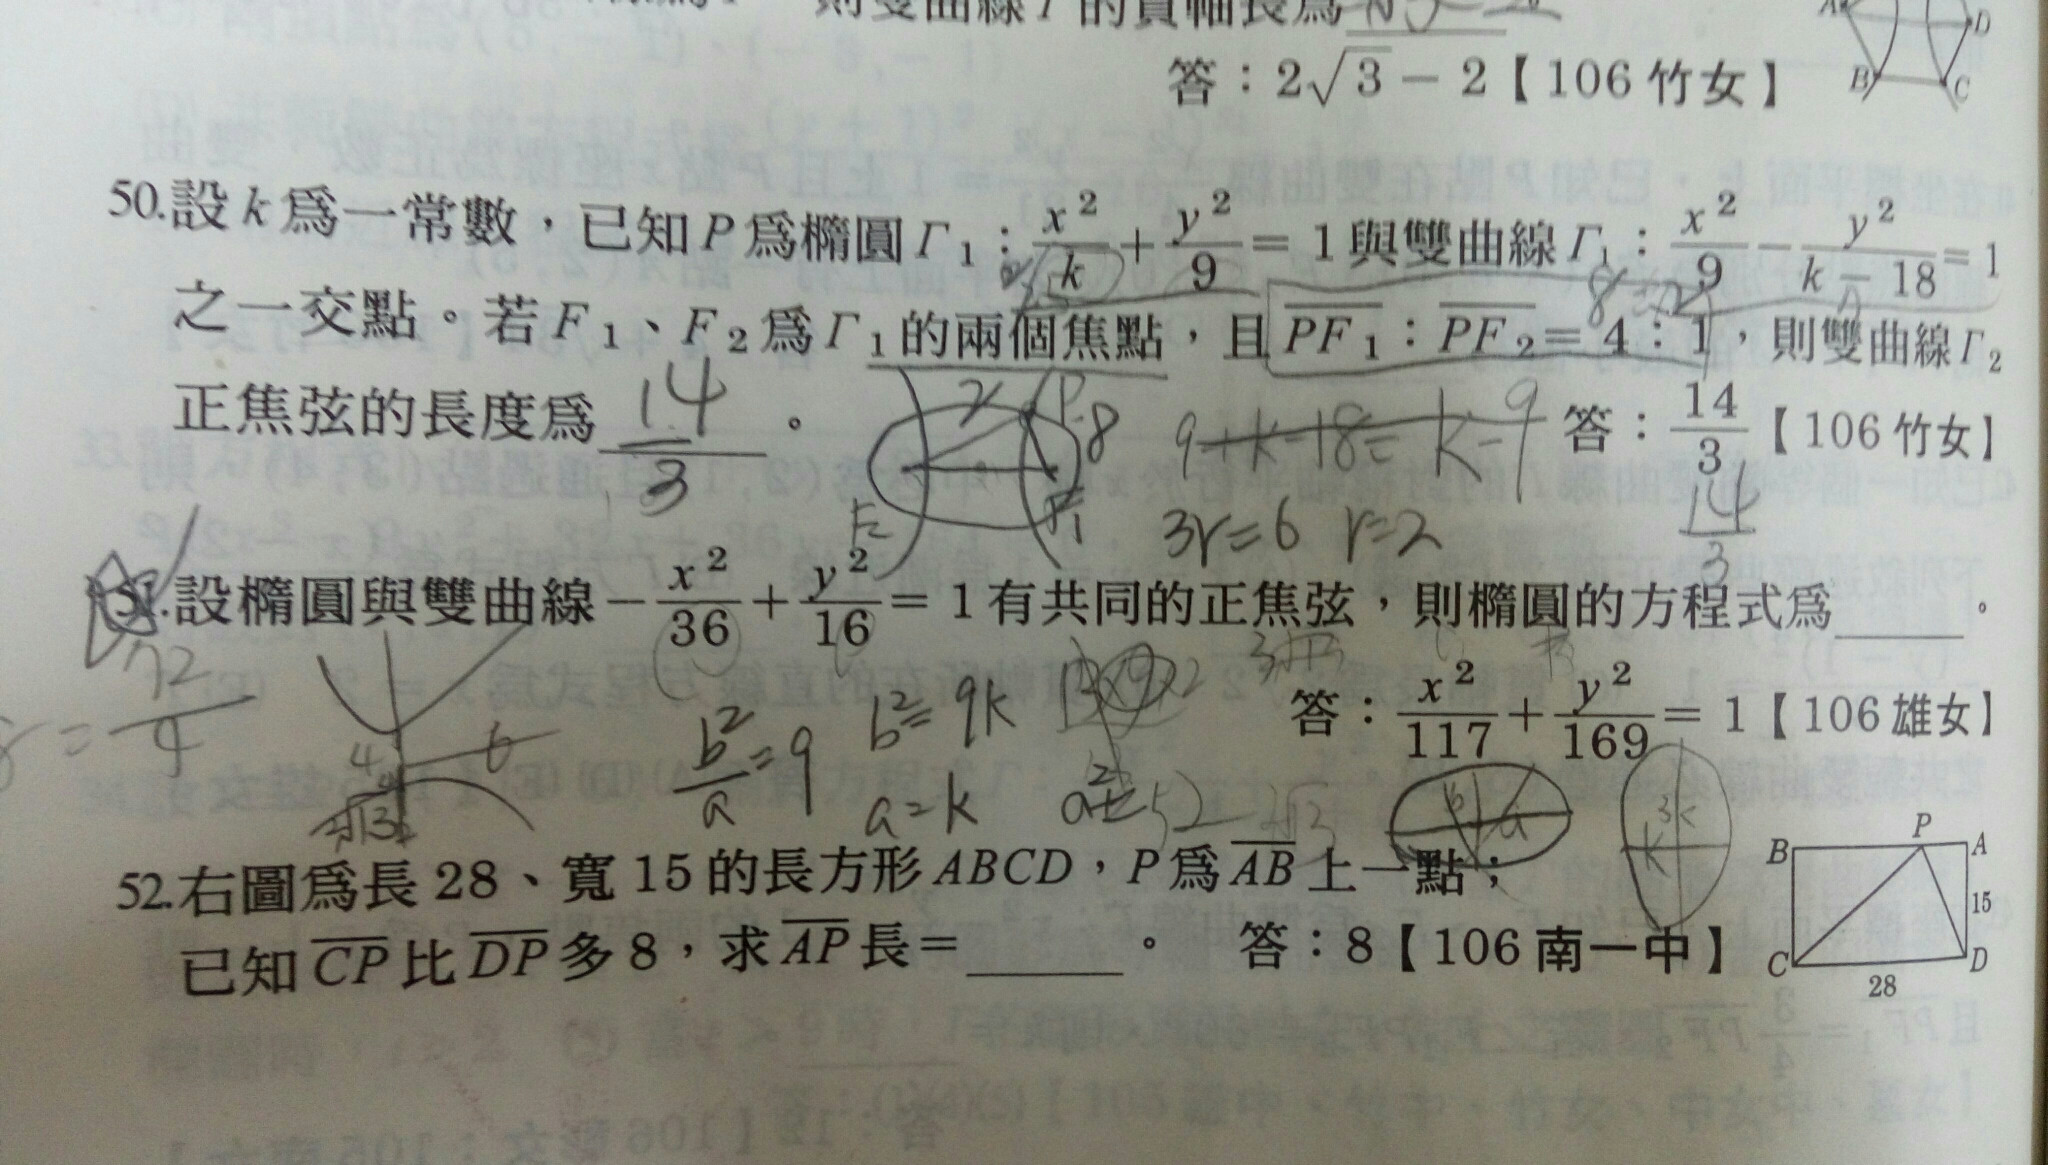 則雙曲線Γ的貫軸長爲
答：2√3 − 2【106 竹女】
A D
B C
50.設 k 爲一常數，已知 P 爲橢圓 Γ₁：x²/k + y²/9 = 1 與雙曲線 Γ₁：x²/9 − y²/(k − 18) = 1
之一交點。若 F₁、F₂ 爲 Γ₁ 的兩個焦點，且 PF₁：PF₂ = 4：1，則雙曲線 Γ₂
正焦弦的長度爲 14/3 。 答：14/3【106 竹女】
9+k-18= k-9
3r=6 r=2
14/3
P
8
F₂ F₁
51.設橢圓與雙曲線 −x²/36 + y²/16 = 1 有共同的正焦弦，則橢圓的方程式爲 。
答：x²/117 + y²/169 = 1【106 雄女】
72
4 6
b²/a = 9 b²=9k
a=k
52
52.右圖爲長 28、寬 15 的長方形 ABCD，P 爲 AB 上一點；
已知 CP 比 DP 多 8，求 AP 長= 。 答：8【106 南一中】
B P A
15
C D
28